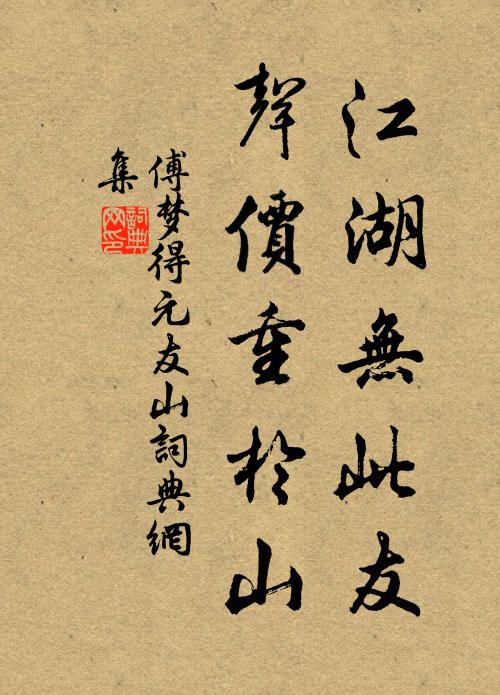 江湖無此友
聲價重於山
傅梦得元友山詞典網
集
詞典网印